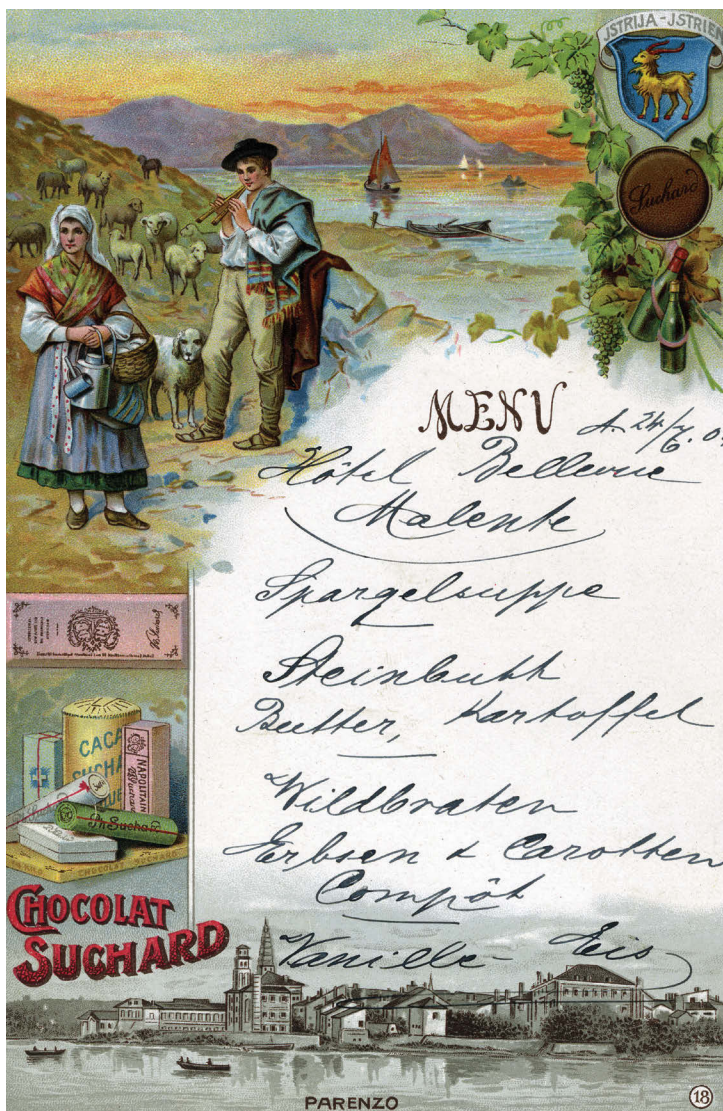 JSTRIJA - JSTRIEN
Suchard
MENU
d. 24/6. 0
Hôtel Bellevue
Malente
Spargelsuppe
Steinbutt
Butter, Kartoffel
Wildbraten
Erbsen & Carotten
Compôt
Vanille - Eis
CACA
SUCHA
NAPOLITAIN
Ph. Suchard
CHOCOLAT SUCHARD
CHOCOLAT
SUCHARD
PARENZO
18